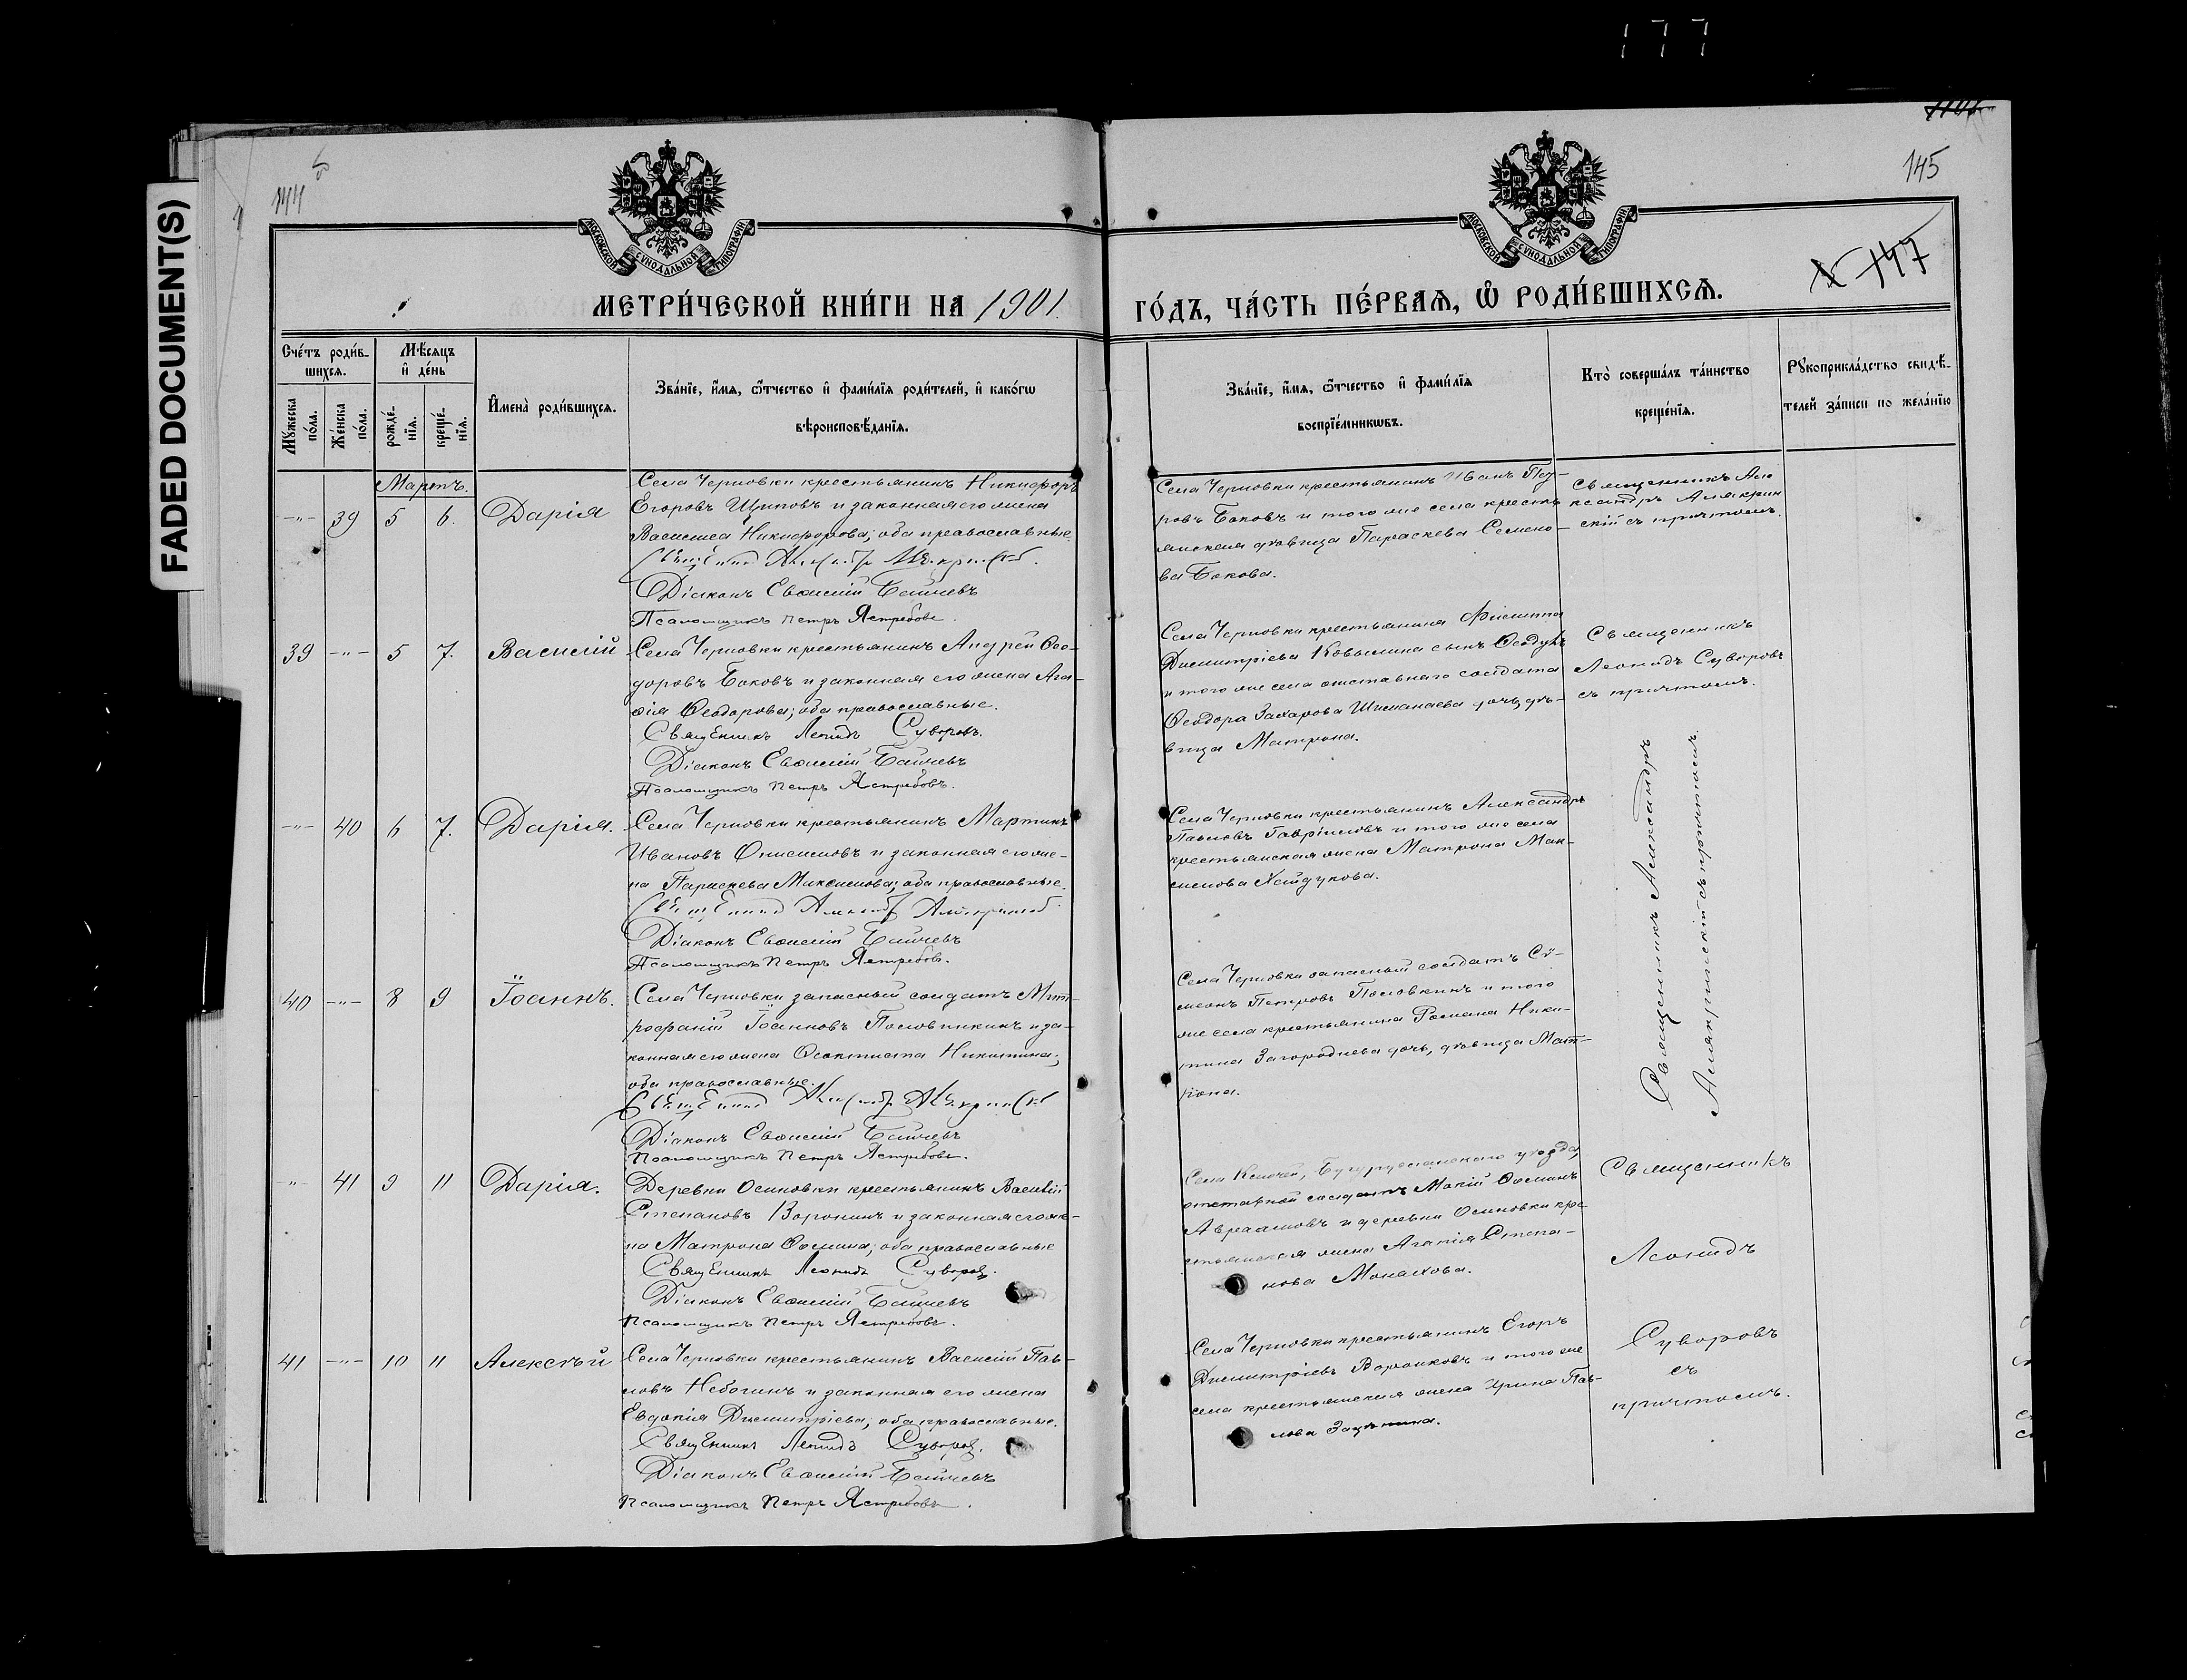 177
FADED DOCUMENT(S)
144
145
147
МОСКОВСКОЙ СУНОДАЛЬНОЙ ТИПОГРАФІИ
МОСКОВСКОЙ СУНОДАЛЬНОЙ ТИПОГРАФІИ
МЕТРИ́ЧЕСКОЙ КНИ́ГИ НА 1901
ГО́ДЪ, ЧА́СТЬ ПЕ́РВАѦ, Ѽ РОДИ́ВШИХСѦ.
Сче́тъ роди́в-
шихсѧ.
Мꙋ́жеска по́ла.
Же́нска по́ла.
Мѣ́сѧцъ и҆ де́нь
рожде́-
нїѧ.
креще́-
нїѧ.
И҆мена̀ роди́вшихсѧ.
Зва́нїе, и҆́мѧ, ѻ҆́тчество и҆ фами́лїѧ роди́телей, и҆ како́гѡ
вѣроисповѣ́данїѧ.
Зва́нїе, и҆́мѧ, ѻ҆́тчество и҆ фами́лїѧ
воспрїе́мникѡвъ.
Кто̀ соверша́лъ та́инство
креще́нїѧ.
Рꙋкоприкла́дство свидѣ́-
телей за́писи по жела́нїю
Мартъ.
-"- 39 5 6. Дарія
Села Черновки крестьянинъ Никифоръ
Егоровъ Щиповъ и законная его жена
Василиса Никифорова; оба православные.
Діаконъ Евѳимій
Псаломщикъ Петръ Ястребовъ.
Села Черновки крестьянинъ Иванъ Пет-
ровъ Боковъ и того же села кресть-
янская дѣвица Параскева Семено-
ва Бокова.
Священникъ Але
ксандръ Алякрин
скій съ причтомъ.
39 -"- 5 7. Василій
Села Черновки крестьянинъ Андрей Ѳео-
доровъ Боковъ и законная его жена Ага-
ѳія Ѳеодорова; оба православные.
Священникъ Леонидъ Суворовъ.
Діаконъ Евѳимій
Псаломщикъ Петръ Ястребовъ.
Села Черновки крестьянина
Димитріева Ковылина сынъ
и того же села отставнаго солдата
Ѳеодора Захарова дочь, дѣ-
вица Матрона.
Священникъ
Леонидъ Суворовъ
съ причтомъ.
-"- 40 6 7. Дарія.
Села Черновки крестьянинъ Мартинъ
Ивановъ Онисимовъ и законная его же-
на Параскева Максимова; оба православные.
Діаконъ Евѳимій
Псаломщикъ Петръ Ястребовъ.
Села Черновки крестьянинъ Александръ
Павловъ Гавріиловъ и того же села
крестьянская жена Матрона Мак-
симова Хайдукова.
Священникъ Александръ
Алякринскій съ причтомъ.
40 -"- 8 9 Іоаннъ.
Села Черновки запасный солдатъ Мит-
рофаній Іоанновъ Половинкинъ и за-
конная его жена Ѳеоктиста Никитина;
оба православные.
Діаконъ Евѳимій
Псаломщикъ Петръ Ястребовъ.
Села Черновки запасный солдатъ Си-
меонъ Петровъ и того
же села крестьянина Романа Ники-
тина Загороднева дочь, дѣвица Мат-
рона.
-"- 41 9 11 Дарія.
Деревни Осиновки крестьянинъ Василій
Степановъ Воронинъ и законная его же-
на Матрона Ѳомина; оба православные
Священникъ Леонидъ Суворовъ.
Діаконъ Евѳимій
Псаломщикъ Петръ Ястребовъ.
Села Ключей, Бугурусланскаго уѣзда,
отставной солдатъ Мокій Ѳоминъ
Авраамовъ и деревни Осиновки кре-
стьянская жена Агапія Степа-
нова Монахова.
Священникъ
Леонидъ
Суворовъ
съ
причтомъ.
41 -"- 10 11 Алексѣй
Села Черновки крестьянинъ Василій Пав-
ловъ Небогинъ и законная его жена
Евдокія Димитріева; оба православные.
Священникъ Леонидъ Суворовъ.
Діаконъ Евѳимій
Псаломщикъ Петръ Ястребовъ.
Села Черновки крестьянинъ Егоръ
Димитріевъ и того же
села крестьянская жена Ирина Пав-
лова